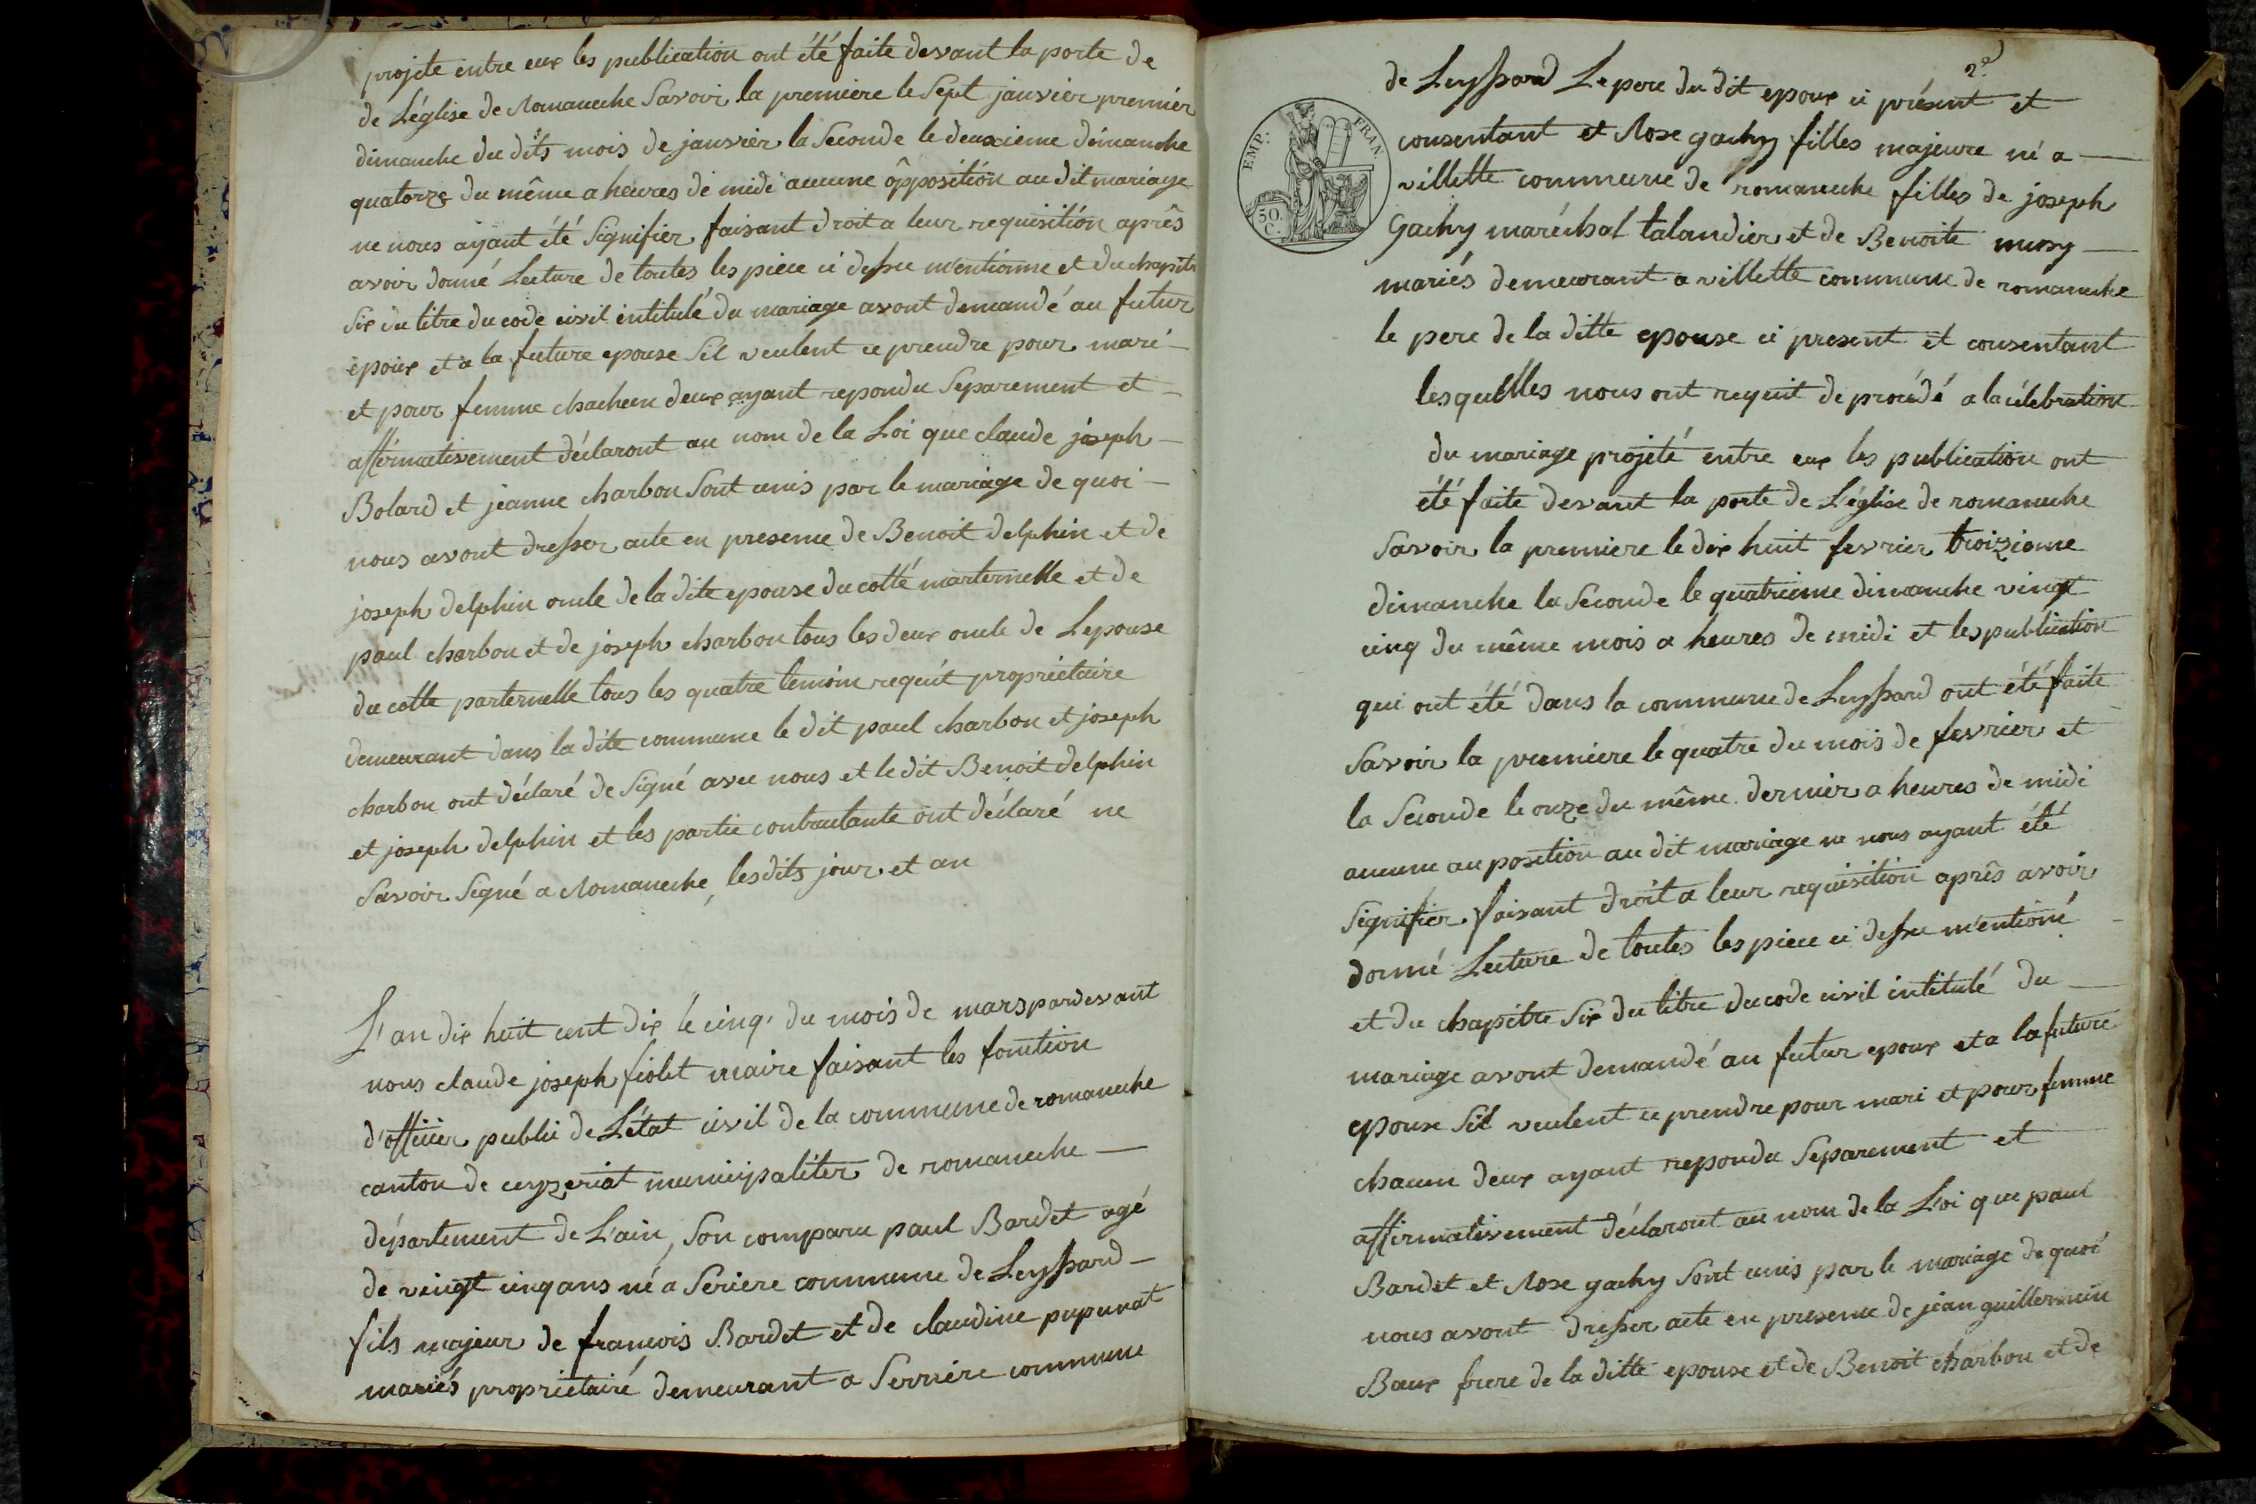 projete entre eux les publication ont été faite devant la porte de
de L'église de Romaneche Savoir la premiere le Sept janvier premier
dimanche du dits mois de janvier la Seconde le deuxieme dimanche
quatorze du même a heures de midi aucune ôpposition au dit mariage
ne nous ayant été Signifier faisant droit a leur requisition après
avoir donné Lecture de toutes les piece ci dessu mentionne et du chapitr
Six du titre du code civil intitulé du mariage avont demandé au futur
époux et a la future epouse Sil veulent ce prendre pour mari —
et pour femme chacheun deux ayant repondu Separement et —
affirmativement déclaront au nom de la Loi que claude joseph —
Bolard et jeanne charbon Sont unis par le mariage de quoi —
nous avont dresser acte en presence de Benoit delphin et de
joseph delphin oncle de la dite epouse du cotté marternelle et de
paul charbon et de joseph charbon tous les deux oncle de Lepouse
du cotte parternelle tous les quatre temoin requit propriétaire
demeurant dans la dite commune le dit paul charbon et joseph
charbon ont déclaré de Signé avec nous et le dit Benoit delphin
et joseph delphin et les partie contractante ont déclaré ne
Savoir Signé a Romaneche, lesdits jour et an
L'an dix huit cent dix le cinq du mois de mars pardevant
nous claude joseph fiolet maire faisant les fonction
d'officier public de L'état civil de la commune de romaneche
canton de ceyzeriat municipaliter de romaneche —
département de L'ain, Son comparu paul Bardet agé
de veingt cinq ans né a Seriere commune de Leyssard —
fils majeur de francois Bardet et de claudine pupunat
mariés propriétairé demeurant a Serriere commune
2e
EMP. FRAN.
50. C.
de Leyssard Le pere du dit epoux ci présent et
consentant et Rose gachy filles majeure né a —
villette commune de romaneche filles de joseph
Gachy maréchal talandier et de Benoite mury —
mariés demeurant a villette commune de romaneche
le pere de la ditte epouse ci present et consentant
lesquelles nous ont requit de procédé a la célebration
du mariage projeté entre eux les publication ont
été faite devant la porte de L'église de romaneche
Savoir la premiere le dix huit fevrier troizieme
dimanche la Seconde le quatrieme dimanche vingt
cinq du même mois a heures de midi et les publication
qui ont été dans la commune de Leyssard ont été faite
Savoir la premiere le quatre du mois de fevrier et
la Seconde le onze du même dernier a heures de midi
aucune auposition au dit mariage ne nous ayant été
Signifier faisant droit a leur requisition après avoir
donné Lecture de toutes les piece ci dessu mentioné
et du chapitre Six du titre du code civil intitulé du —
mariage avont demandé au futur epoux et a la future
epouse Sil veulent ce prendre pour mari et pour femme
chacun deux ayant repondu Separement et
affirmativement déclaront au nom de la Loi que paul
Bardet et Rose gachy Sont unis par le mariage de quoi
nous avont dresser acte en presence de jean guillermin
Baux frere de la ditte epouse et de Benoit charbon et de